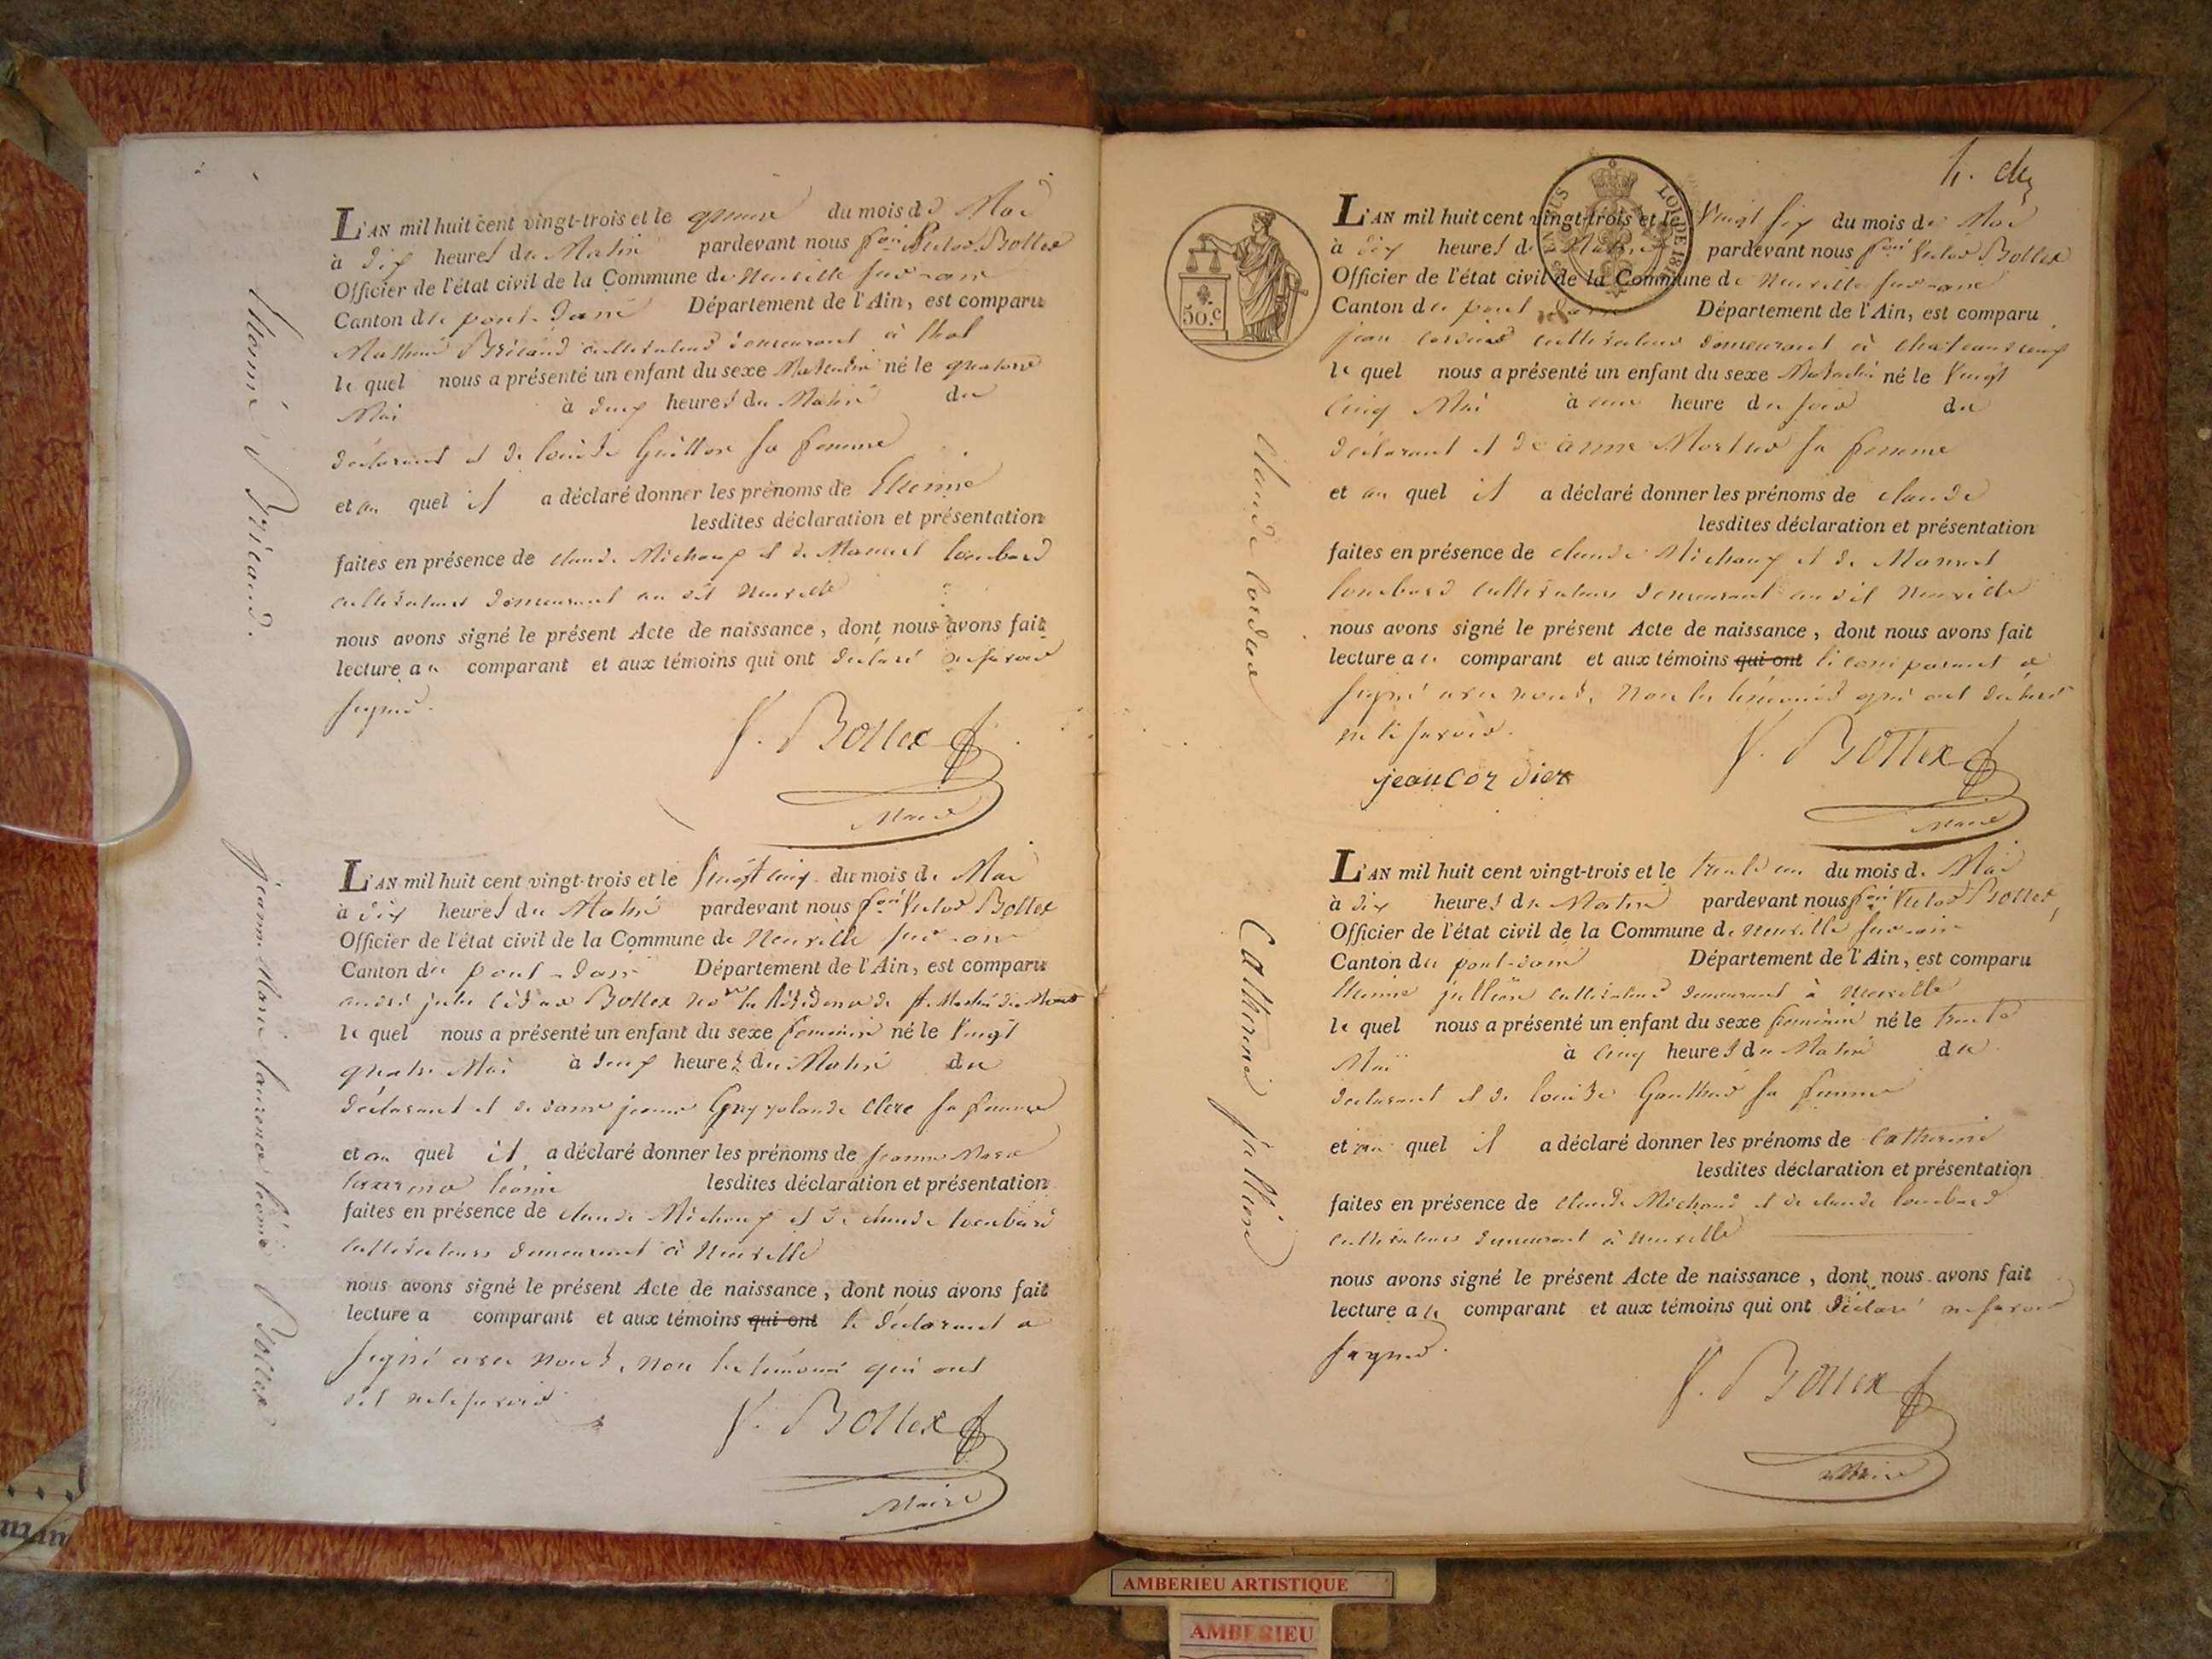 L'AN mil huit cent vingt-trois et le quinze du mois de Mai
à dix heures du Matin pardevant nous f.ois Victor Bottex
Officier de l'état civil de la Commune de Neuville sur-ain
Canton de pont-dain Département de l'Ain, est comparu
cultivateur demeurant à thol
le quel nous a présenté un enfant du sexe Masculin né le quatorze
Mai à deux heures du Matin du
déclarant et de louise Guillon sa femme
et au quel il a déclaré donner les prénoms de Etienne
lesdites déclaration et présentation
faites en présence de claude Michoux et de Manuel loubard
cultivateurs demeurant au dit Neuville
nous avons signé le présent Acte de naissance, dont nous avons fait
lecture au comparant et aux témoins qui ont declaré ne savoir
signer.
V. Bottex
Maire
Etienne
L'AN mil huit cent vingt-trois et le Vingt cinq du mois de Mai
à dix heures du Matin pardevant nous f.ois Victor Bottex
Officier de l'état civil de la Commune de Neuville sur-ain
Canton du pont-dain Département de l'Ain, est comparu
andré jules Bottex
le quel nous a présenté un enfant du sexe feminin né le Vingt
quatre Mai à deux heures du Matin du
déclarant et de dame jeanne clerc sa femme
et au quel il a déclaré donner les prénoms de jeanne Marie
laurence léonie lesdites déclaration et présentation
faites en présence de claude Michoux et de claude loubard
cultivateurs demeurant à Neuville
nous avons signé le présent Acte de naissance, dont nous avons fait
lecture a comparant et aux témoins qui ont le déclarant a
signé avec nous, non les temoins qui ont
dit ne le savoir.
V. Bottex
Maire
jeanne Marie laurence léonie Bottex
4. 
50.c
LOI DE 1816
L'AN mil huit cent vingt-trois et le Vingt six du mois de Mai
à dix heures du Matin pardevant nous f.ois Victor Bottex
Officier de l'état civil de la Commune de Neuville sur-ain
Canton du pont dain Département de l'Ain, est comparu
jean cordier cultivateur demeurant à chateauvieux
le quel nous a présenté un enfant du sexe Masculin né le Vingt
cinq Mai à une heure du soir du
déclarant et de anne sa femme
et au quel il a déclaré donner les prénoms de claude
lesdites déclaration et présentation
faites en présence de claude Michoux et de Manuel
loubard cultivateurs demeurant au dit Neuville
nous avons signé le présent Acte de naissance, dont nous avons fait
lecture au comparant et aux témoins qui ont le comparant a
signé avec nous, non les témoins qui ont déclaré
ne le savoir.
jean cordier
V. Bottex
Maire
claude cordier
L'AN mil huit cent vingt-trois et le trente un du mois de Mai
à dix heures du Matin pardevant nous f.ois Victor Bottex
Officier de l'état civil de la Commune de Neuville sur-ain
Canton du pont-dain Département de l'Ain, est comparu
Etienne jullien cultivateur demeurant à Neuville
le quel nous a présenté un enfant du sexe feminin né le trente
Mai à cinq heures du Matin du
déclarant et de louise Gauthier sa femme
et au quel il a déclaré donner les prénoms de Catherine
lesdites déclaration et présentation
faites en présence de claude Michoux et de claude loubard
cultivateurs demeurant à Neuville
nous avons signé le présent Acte de naissance, dont nous avons fait
lecture au comparant et aux témoins qui ont déclaré ne savoir
signer.
V. Bottex
Maire
Catherine jullien
AMBERIEU ARTISTIQUE
AMBERIEU